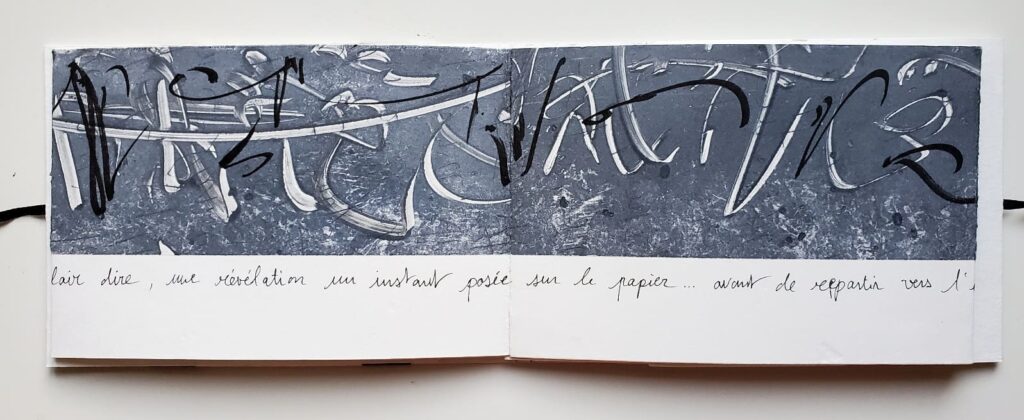 lair dire, une révélation un instant posée sur le papier... avant de reppartir vers l'